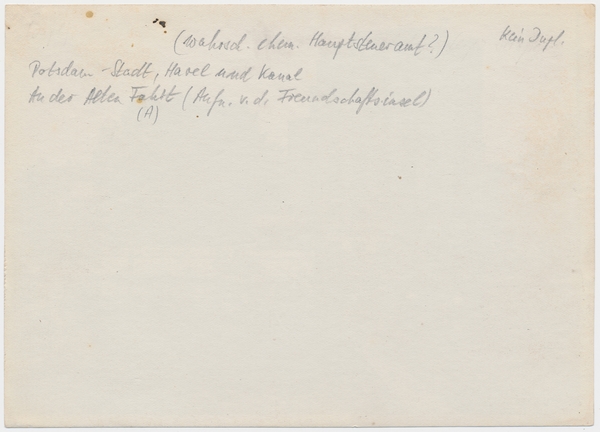 (wahrsch. ehem. Hauptsteueramt?)
Kein Dupl.
Potsdam-Stadt, Havel und Kanal
An der Alten Fahrt (Aufn. v. d. Freundschaftsinsel)
(A)